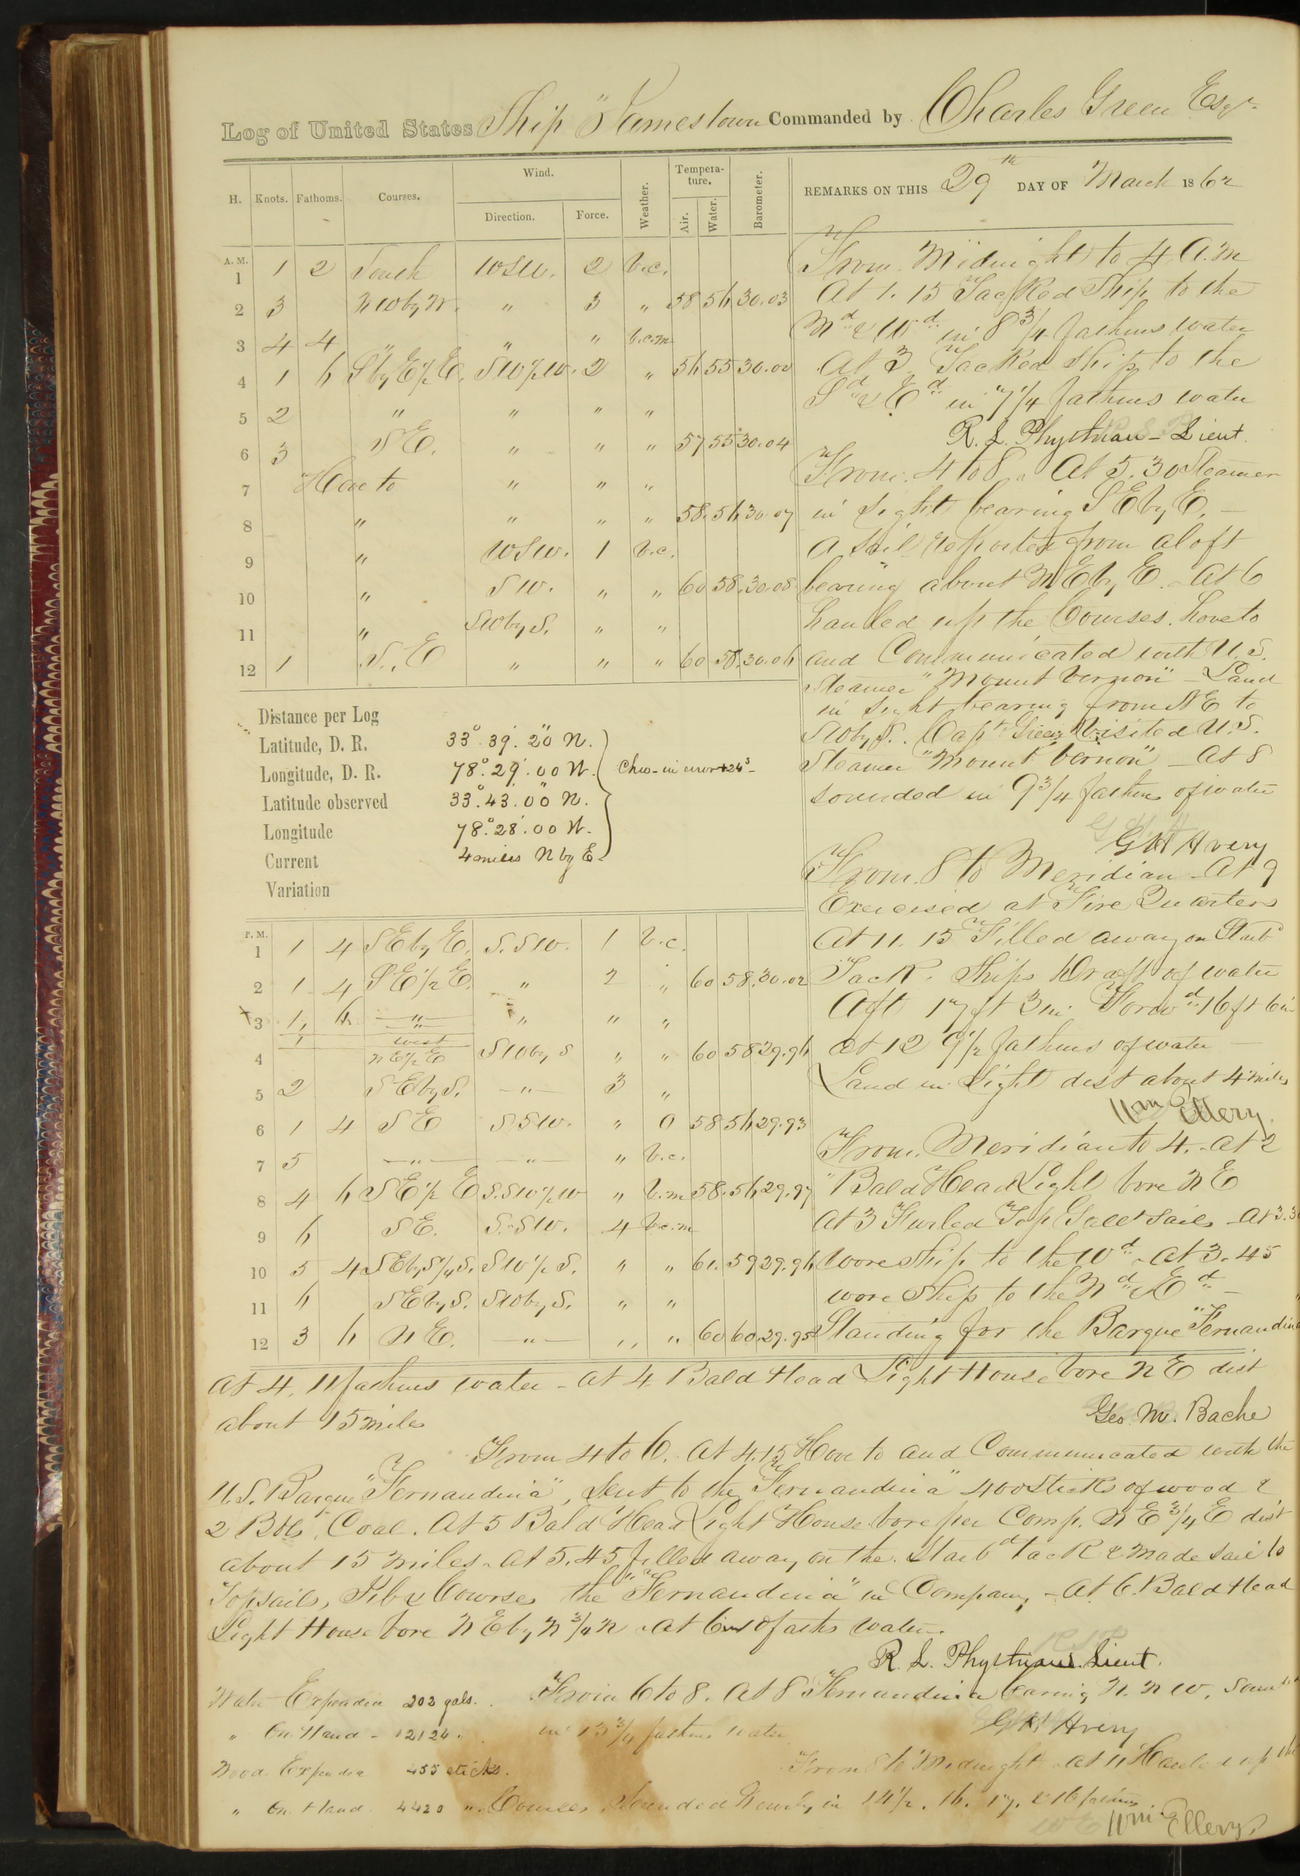 Log of United States Ship "Jamestown Commanded by Charles Green Esqr.
H. Knots. Fathoms. Courses. Wind. Direction. Force. Weather. Tempera-ture. Air. Water. Barometer.
REMARKS ON THIS 29th DAY OF March 1862
A. M.
1 1 2 South WSW. 2 b.c.
2 3 NWbyW. " 3 " 58 56 30.03
3 4 4 " " " b.c.m
4 1 6 SbyE½E. SW½W. 2 " 56 55 30.00
5 2 " " " "
6 3 SE. " " " 57 55 30.04
7 Hove to " " "
8 " " " " 58. 56 30.07
9 " WSW. 1 b.c.
10 " SW. " " 60 58. 30.08
11 " SWbyS. " "
12 1 S.E " " " 60 58. 30.06
From Midnight to 4 A.M
At 1.15 Tacked Ship to the
Nd & Wd in 8¾ fathoms water
At 3 Tacked Ship to the
Sd & Ed in 7¼ fathoms water
R. L. Phythian - Lieut.
From 4 to 8. At 5.30 Steamer
in sight bearing SEbyE. -
A sail reported from aloft
bearing about NEbyE. - At 6
hauled up the Courses. hove to
and Communicated with U.S.
Steamer "Mount Vernon" - Land
in sight bearing from NE to
SWbyS. Capt Green visited U.S.
Steamer "Mount Vernon" - At 8
sounded in 9¾ fathms of water
G H Avery
From 8 to Meridian - At 9
Exercised at Fire Quarters
At 11.15 Filled away on Starbd
Tack. Ships Draft of water
Aft 17 ft 3 in Forwd 16 ft 6 in
At 12 9½ fathoms of water -
Land in Sight dist about 4 miles
Wm Ellery.
Distance per Log
Latitude, D. R. 33° 39'. 20" N.
Longitude, D. R. 78°. 29'. 00 W. Chro - in error +24s -
Latitude observed 33°. 43'. 00" N.
Longitude 78°. 28'. 00 W.
Current 4 miles N by E.
Variation
P. M.
1 1 4 SEbyE. S.SW. 1 b.c.
2 1 4 SE½E. " 2 " 60 58. 30.02
3 1, 6. " " " "
1 "
west
4 NE½E SWbyS " " 60 58 29.96
5 2 SEbyS. " 3 "
6 1 4 SE S.SW. " O 58 56 29.93
7 5 " " " b.c.
8 4 6 SE½E S.SW½W " b.m 58. 56 29.97
9 6 SE. S.SW. 4 b.c.m
10 5 4 SEbyS¼S. SW½S. " " 61. 59 29.96
11 6 SEbyS. SWbyS. " "
12 3 6 NE. " " " 60 60. 29.95
From Meridian to 4. At 2
Bald Head Light bore NE
At 3 Furled Top Gallt sails - At 3.30
wore ship to the Wd - At 3.45
wore Ship to the Nd & Ed -
Standing for the Barque "Fernandina
At 4, 11 fathoms water - At 4 Bald Head Light House bore NE dist
about 15 miles
Geo. M. Bache
From 4 to 6. At 4.15 Hove to and Communicated with the
U.S. Barque "Fernandina", Sent to the "Fernandina" 400 Sticks of wood &
2 Bbls. Coal. At 5 Bald Head Light House bore per Comp. NE¾E dist
about 15 miles. At 5.45 filled away on the Starbd tack & made sail to
Topsails, Jib & Courses the "Fernandina" in Company - At 6. Bald Head
Light House bore NEbyN¾N - At 6 10 faths water.
R. L. Phythian. Lieut.
Water Expended 202 gals.
" On Hand - 12126.
Wood Expended 455 sticks.
" On Hand 4420 "
From 6 to 8. At 8 Fernandina bearing N.NW.
in 13¾ fathoms water
G H Avery
From 8 to Midnight. At 11 Hauled up the
Courses. Sounded Hourly in 14½, 16, 17, & 16 fathms
Wm Ellery.